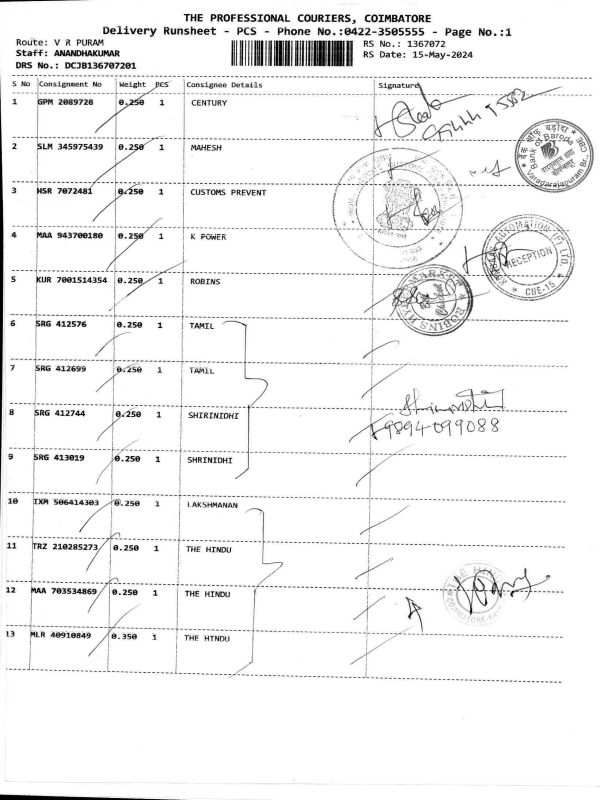 THE PROFESSIONAL COURIERS, COIMBATORE
Delivery Runsheet - PCS - Phone No.:0422-3505555 - Page No.:1
Route: V R PURAM
Staff: ANANDHAKUMAR
DRS No.: DCJB136707201
RS No.: 1367072
RS Date: 15-May-2024
S No Consignment No Weight PCS Consignee Details Signature
1 GPM 2089728 0.250 1 CENTURY
2 SLM 345975439 0.250 1 MAHESH
बैंक ऑफ़ बड़ौदा
Bank of Baroda
Varadarajapuram Br.,
CBE
3 HSR 7072481 0.250 1 CUSTOMS PREVENT
4 MAA 943700180 0.250 1 K POWER
AUTOMATION (P) LTD.
RECEPTION
* CBE-15 *
5 KUR 7001514354 0.250 1 ROBINS
6 SRG 412576 0.250 1 TAMIL
7 SRG 412699 0.250 1 TAMIL
8 SRG 412744 0.250 1 SHIRINIDHI
9894099088
9 SRG 413019 0.250 1 SHRINIDHI
10 IXM 506414303 0.250 1 LAKSHMANAN
11 TRZ 210285273 0.250 1 THE HINDU
12 MAA 703534869 0.250 1 THE HINDU
13 MLR 40910849 0.350 1 THE HINDU